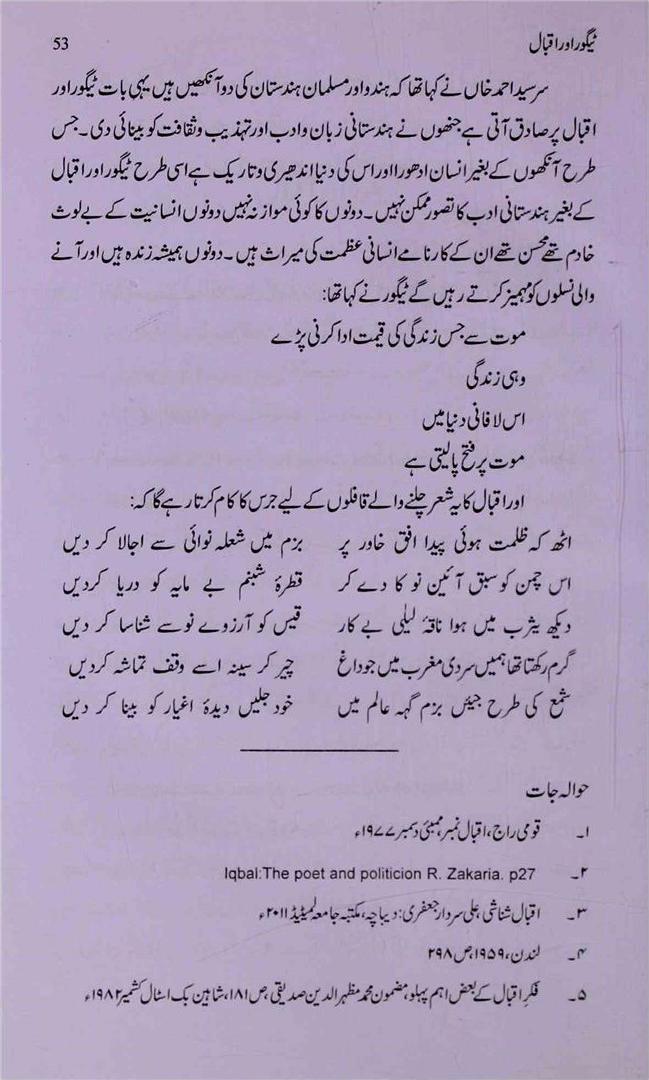 ٹیگور اور اقبال 53
سرسید احمد خاں نے کہا تھا کہ ہندو اور مسلمان ہندستان کی دو آنکھیں ہیں یہی بات ٹیگور اور
اقبال پر صادق آتی ہے جنھوں نے ہندستانی زبان و ادب اور تہذیب و ثقافت کو بینائی دی۔ جس
طرح آنکھوں کے بغیر انسان ادھورا اور اس کی دنیا اندھیری و تاریک ہے اسی طرح ٹیگور اور اقبال
کے بغیر ہندستانی ادب کا تصور ممکن نہیں۔ دونوں کا کوئی موازنہ نہیں دونوں انسانیت کے بے لوث
خادم تھے محسن تھے ان کے کارنامے انسانی عظمت کی میراث ہیں۔ دونوں ہمیشہ زندہ ہیں اور آنے
والی نسلوں کو مہمیز کرتے رہیں گے ٹیگور نے کہا تھا:
موت سے جس زندگی کی قیمت ادا کرنی پڑے
وہی زندگی
اس لافانی دنیا میں
موت پر فتح پا لیتی ہے
اور اقبال کا یہ شعر چلنے والے قافلوں کے لیے جرس کا کام کرتا رہے گا کہ:
اٹھ کہ ظلمت ہوئی پیدا افق خاور پر بزم میں شعلہ نوائی سے اجالا کر دیں
اس چمن کو سبق آئین نو کا دے کر قطرۂ شبنم بے مایہ کو دریا کردیں
دیکھ یثرب میں ہوا ناقۂ لیلیٰ بے کار قیس کو آرزوے نو سے شناسا کر دیں
گرم رکھتا تھا ہمیں سردی مغرب میں جو داغ چیر کر سینہ اسے وقف تماشہ کردیں
شمع کی طرح جیئں بزم گہہ عالم میں خود جلیں دیدۂ اغیار کو بینا کر دیں
حوالہ جات
۱۔ قومی راج، اقبال نمبر، ممبئی دسمبر ۱۹۷۷ء
۲۔ Iqbal:The poet and politicion R. Zakaria. p27
۳۔ اقبال شناشی، علی سردار جعفری: دیباچہ، مکتبہ جامعہ لمیٹیڈ ۲۰۱۱ء
۴۔ لندن، ۱۹۵۹، ص ۲۹۸
۵۔ فکر اقبال کے بعض اہم پہلو، مضمون محمد مظہر الدین صدیقی، ص ۱۸۱، شاہین بک اسٹال کشمیر ۱۹۸۲ء